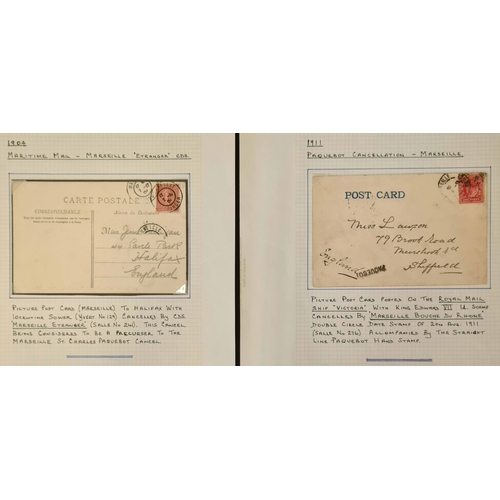 1904
MARITIME MAIL - MARSEILLE "ETRANGER" CDS.
CARTE POSTALE
CORRESPONDANCE
Miss
Savile Park
Halifax
England
PICTURE POST CARD (MARSEILLE) TO HALIFAX WITH
10CENTIME SOWER (YVERT NO 129) CANCELLED BY CDS
MARSEILLE ETRANGER (SALLE NO 211). THIS CANCEL
BEING CONSIDERED TO BE A PRECURSER TO THE
MARSEILLE ST CHARLES PAQUEBOT CANCEL.
1911
PAQUEBOT CANCELLATION - MARSEILLE.
POST CARD
Miss
79 Broot Road
Sheffield
England
PAQUEBOT
PICTURE POST CARD POSTED ON THE ROYAL MAIL
SHIP "VICTORIA" WITH KING EDWARD VII 1d. STAMP
CANCELLED BY "MARSEILLE BOUCHE DU RHONE"
DOUBLE CIRCLE DATE STAMP OF 2ND AUG 1911
(SALLE NO 216) ACCOMPANIED BY THE STRAIGHT
LINE PAQUEBOT HAND STAMP.